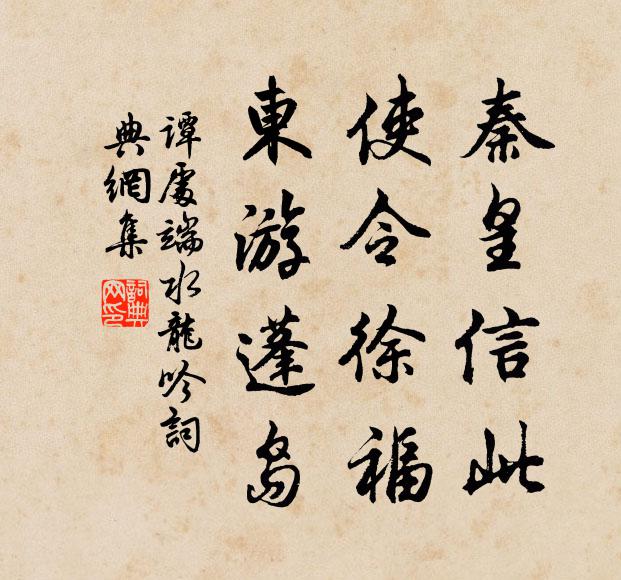 秦皇信此
使令徐福
東游蓬島
譚處端水龍吟詞
典網集
詞典網印